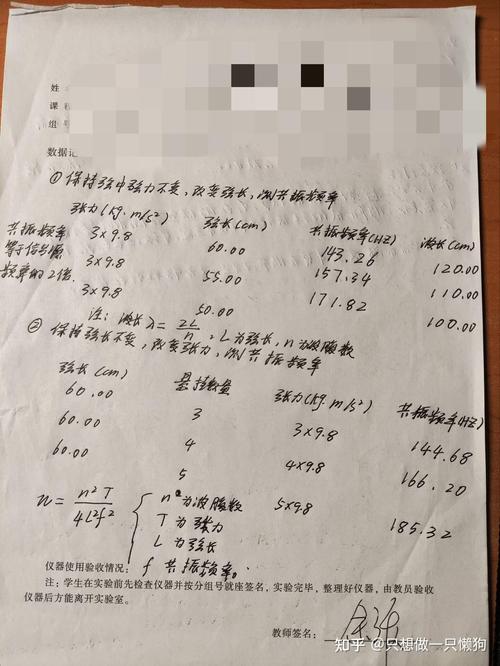 姓
课
组号
数据记
①保持弦中张力不变,改变弦长,测共振频率
张力(kg·m/s²) 弦长(cm) 共振频率(HZ) 波长(cm)
共振频率等于信号源频率的2倍.
3×9.8 60.00 143.26 120.00
3×9.8 55.00 157.34 110.00
3×9.8 50.00 171.82 100.00
注:波长λ=2L/n,L为弦长,n为波腹数
②保持弦长不变,改变张力,测共振频率
弦长(cm) 悬挂数量 张力(kg·m/s²) 共振频率(HZ)
60.00 3 3×9.8 144.68
60.00 4 4×9.8 166.20
60.00 5 5×9.8 185.32
u=n²T/4L²f² { n为波腹数
T为张力
L为弦长
f共振频率。
仪器使用验收情况:
注:学生在实验前先检查仪器并按分组号就座签名,实验完毕,整理好仪器,由教员验收
仪器后方能离开实验室。
教师签名:
知乎 @只想做一只懒狗